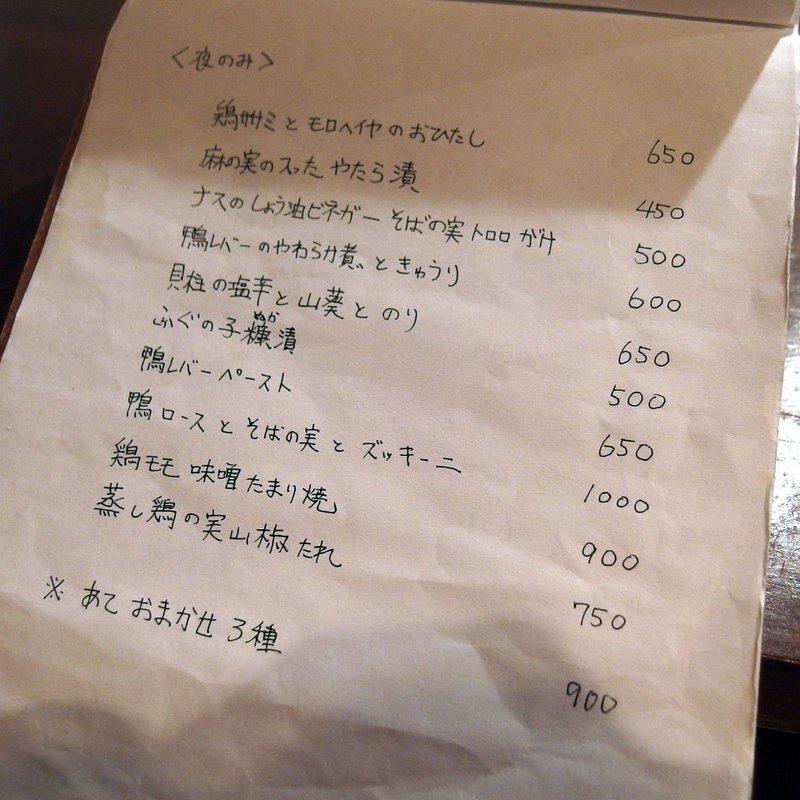 ＜夜のみ＞
鶏ササミと モロヘイヤのおひたし 650
麻の実の入った やたら漬 450
ナスのしょう油ビネガー そばの実トロロがけ 500
鴨レバーのやわらか煮 ときゅうり 600
貝柱の塩辛と山葵とのり 650
ふぐの子糠漬 500
ぬか
鴨レバーペースト 650
鴨ロースとそばの実とズッキーニ 1000
鶏モモ 味噌たまり焼 900
蒸し鶏の実山椒たれ 750
※ あて おまかせ 3種 900